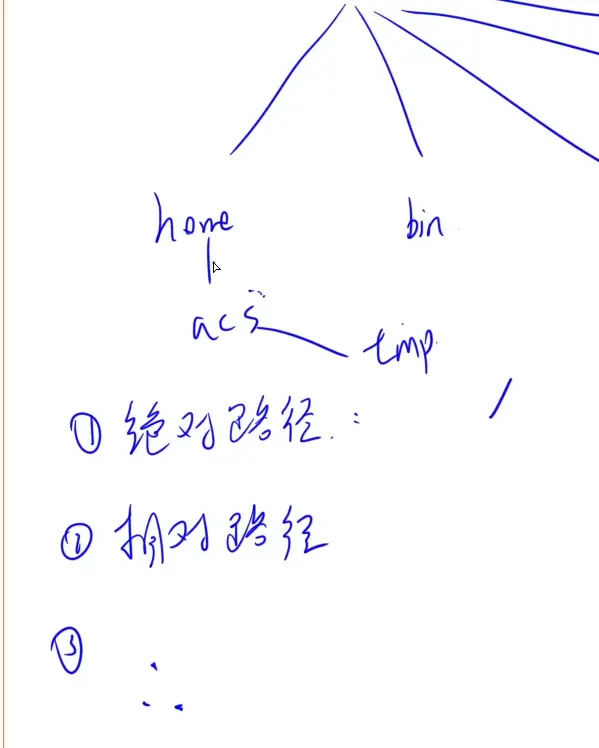 home bin
acs tmp
① 绝对路径: /
② 相对路径
③
. ..